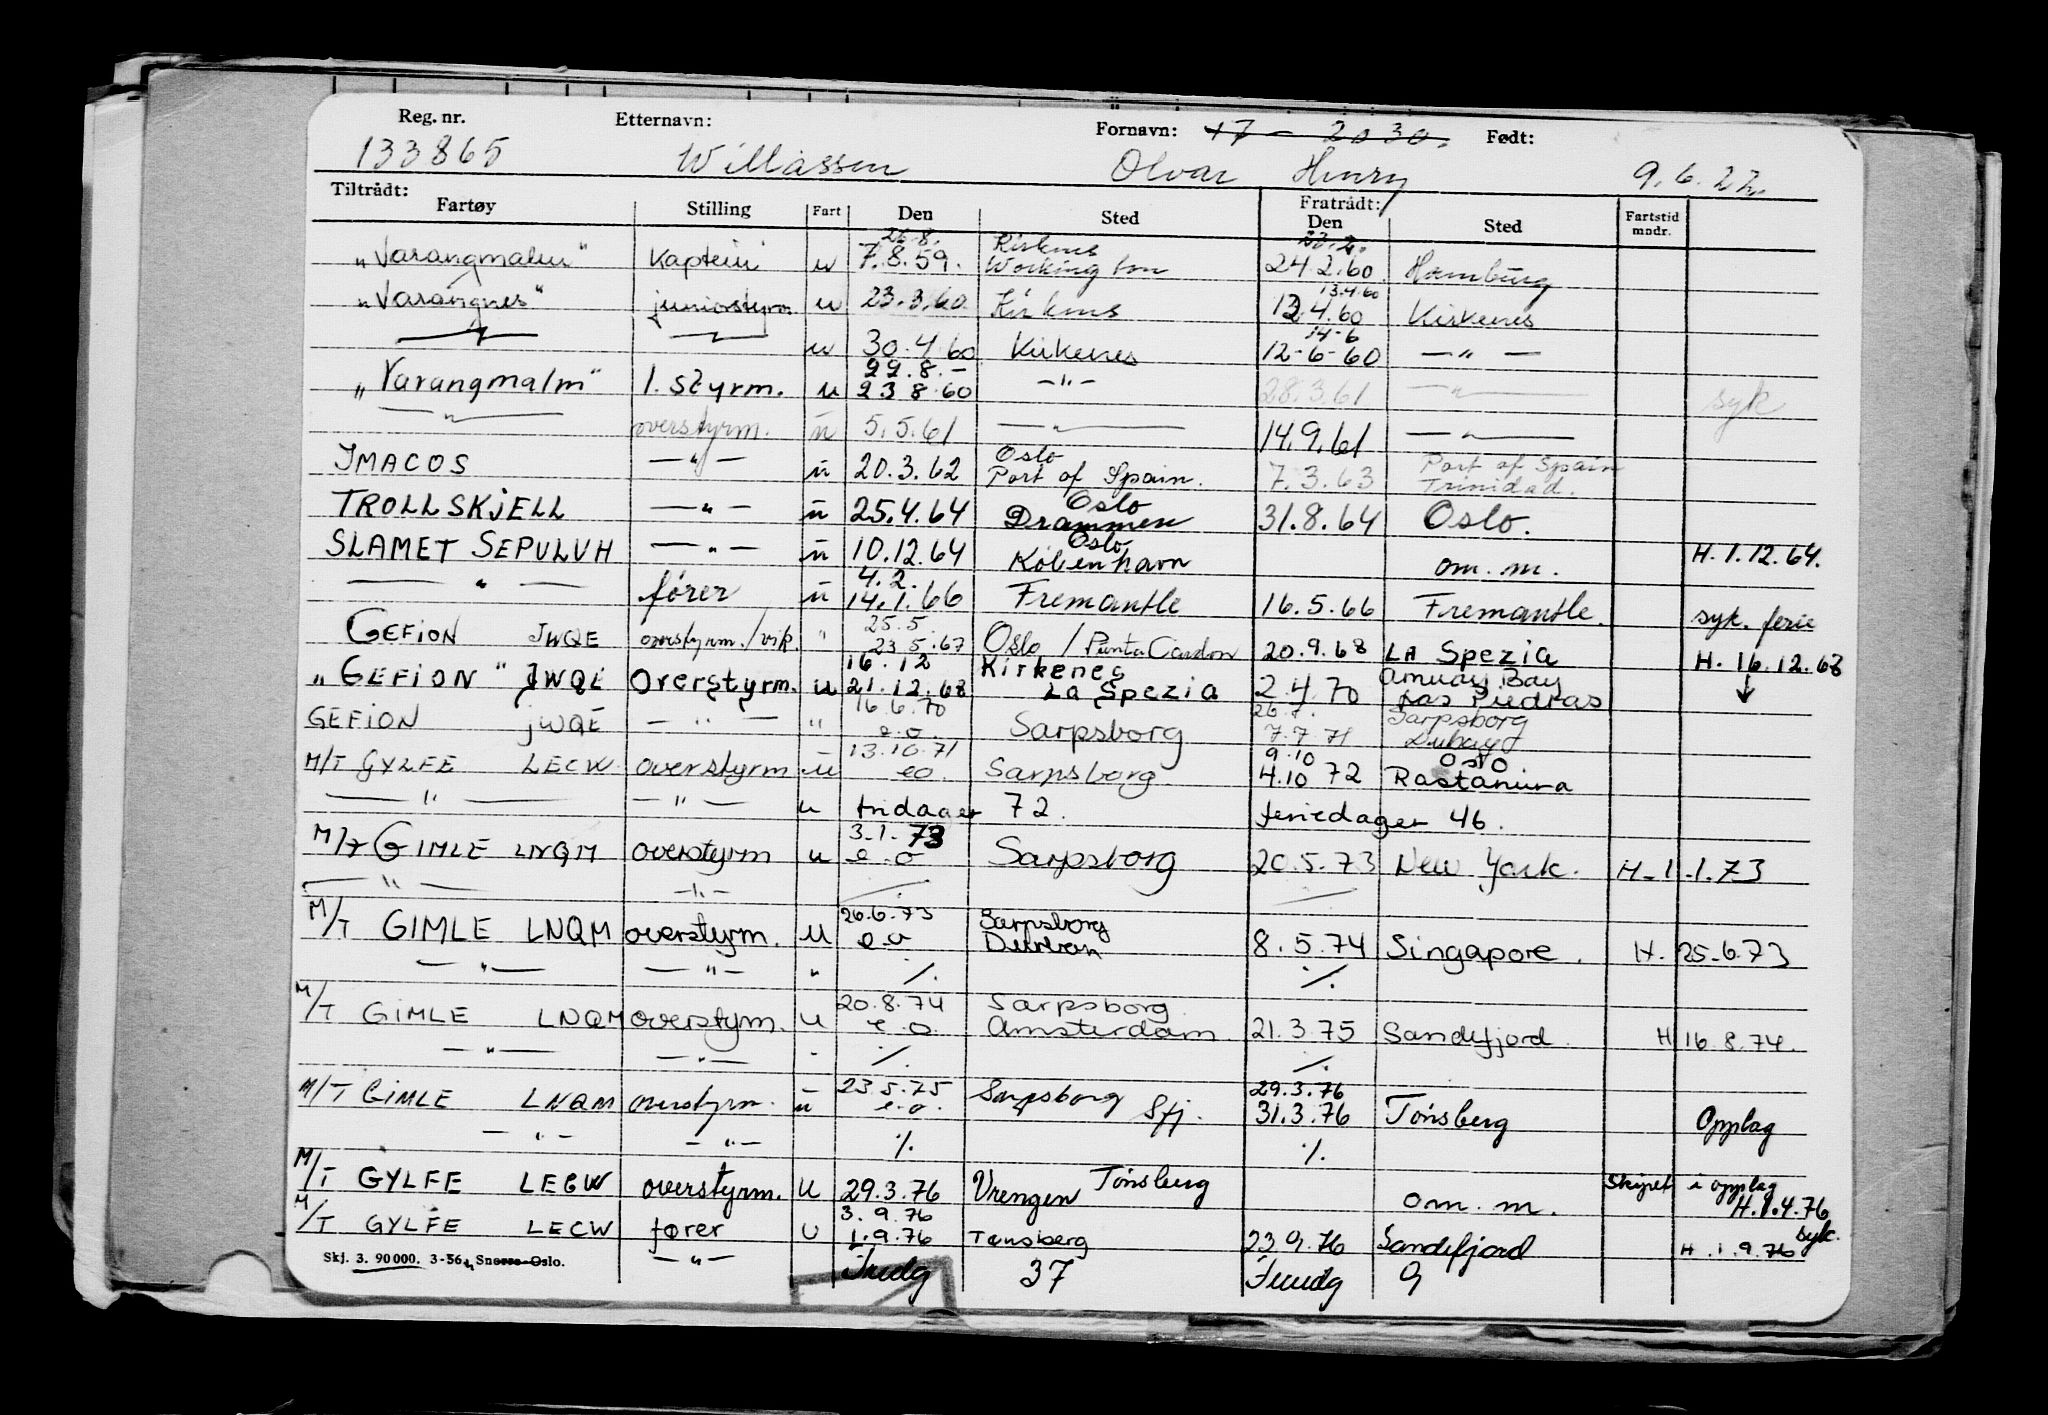 Reg. nr. Etternavn: Fornavn: 17 - 2030. Født:
133865 Willassen Olvar Henry 9.6.22.
Tiltrådt: Fratrådt:
Fartøy Stilling Fart Den Sted Den Sted Fartstid mndr.
26.8. Kirkenes 23.2.
"Varangmalm" Kaptein u 7.8.59. Workington 24.2.60 Hamburg
13.4.60
"Varangnes" juniorstyrm u 23.3.60 Kirkenes 12.4.60 Kirkenes
14-6
—"— —"— u 30.4.60 Kirkenes 12-6-60 —"—
22.8.-
"Varangmalm" 1. styrm. u 23 8.60 —"— 28.3.61 —"— syk
—"— overstyrm. u 5.5.61 —"— 14.9.61 —"—
Oslo Port of Spain
IMACOS —"— u 20.3.62 Port of Spain. 7.3.63 Trinidad.
Oslo
TROLLSKJELL —"— u 25.4.64 Drammen 31.8.64 Oslo.
Oslo
SLAMET SEPULUH —"— u 10.12.64 København om. m. H. 1.12.64.
4.2.
—"— fører u 14.1.66 Fremantle 16.5.66 Fremantle. syk. ferie
25.5
GEFION JWQE overstyrm./vik. " 23.5.67 Oslo / Punta Cardon 20.9.68 LA Spezia H. 16.12.68
16.12 Kirkenes Amuay Bay
"GEFION" JWQE Overstyrm. u 21.12.68 La Spezia 2.4.70 Las Piedras ↓
16.6.70 26.7. Sarpsborg
GEFION JWQE —"— " e.o. Sarpsborg 7.7.71 Dubay
13.10.71 9.10 Oslo
M/T GYLFE LECW overstyrm u eo. Sarpsborg 4.10 72 Rastanura
—"— —"— u fridager 72. feriedager 46.
3.1.73
M/T GIMLE LNQM overstyrm u e.o Sarpsborg 20.5.73 New York. H. 1.1.73
—"— —"—
26.6.73 Sarpsborg
M/T GIMLE LNQM overstyrm. u e.o Durban 8.5.74 Singapore. H. 25.6.73
—"— —"— " ./. ./.
20.8.74 Sarpsborg
M/T GIMLE LNQM overstyrm. u e.o. Amsterdam 21.3.75 Sandefjord. H 16.8.74.
—"— —"— - ./. ./.
23.5.75 29.3.76
M/T GIMLE LNQM overstyrm. u e.o. Sarpsborg Sfj. 31.3.76 Tønsberg Opplag
—"— —"— ./. ./.
M/T GYLFE LECW overstyrm. u 29.3.76 Vrengen Tønsberg om. m. Skipet i opplag H. 1.4.76
3.9.76 syk.
M/T GYLFE LECW fører u 1.9.76 Tønsberg 23 9.76 Sandefjord H. 1.9.76
—"— Fridg 37 Feridg 9
Skj. 3. 90 000. 3-56, Snorre-Oslo.